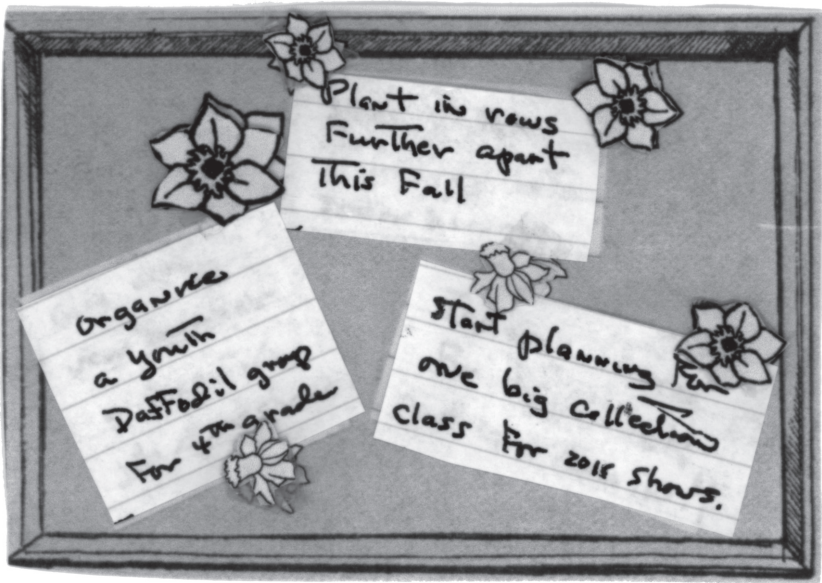 Plant in rows
Further apart
This Fall
organize
a youth
Daffodil group
For 4th grade
Start planning
for
one big collection
class for 2015 shows.